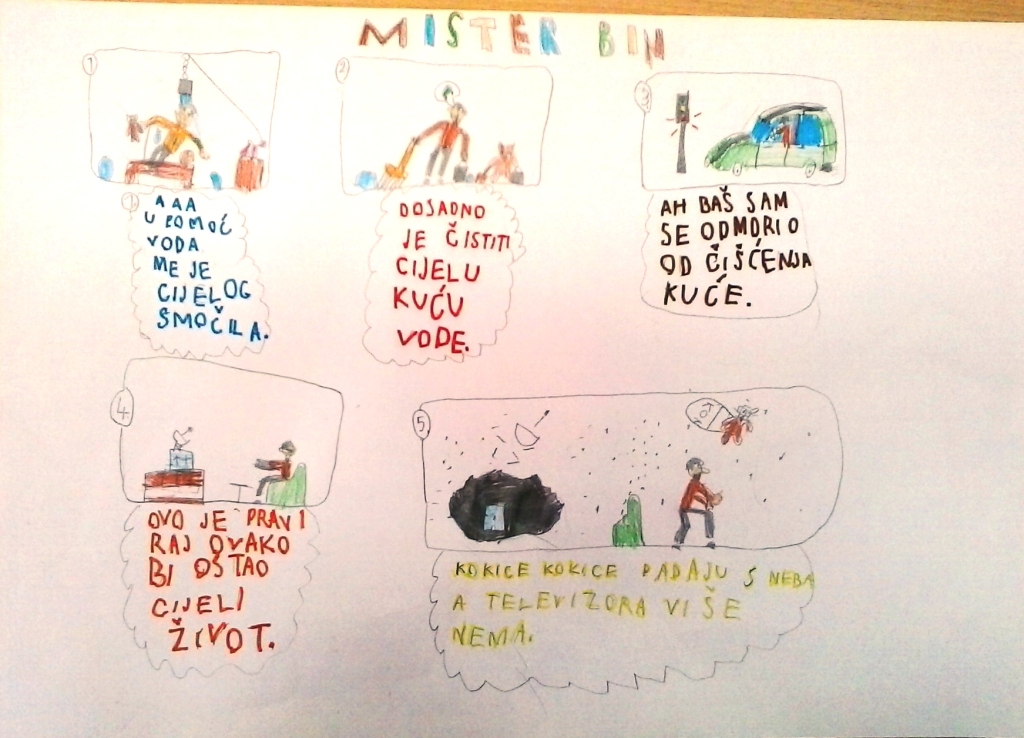 MISTER BIN
1
AAA
U POMOĆ
VODA
ME JE
CIJELOG
SMOČILA.
2
DOSADNO
JE ČISTITI
CIJELU
KUĆU
VODE.
3
AH BAŠ SAM
SE ODMORIO
OD ČIŠĆENJA
KUĆE.
4
OVO JE PRAVI
RAJ OVAKO
BI OSTAO
CIJELI
ŽIVOT.
5
KOKICE KOKICE PADAJU S NEBA
A TELEVIZORA VIŠE
NEMA.